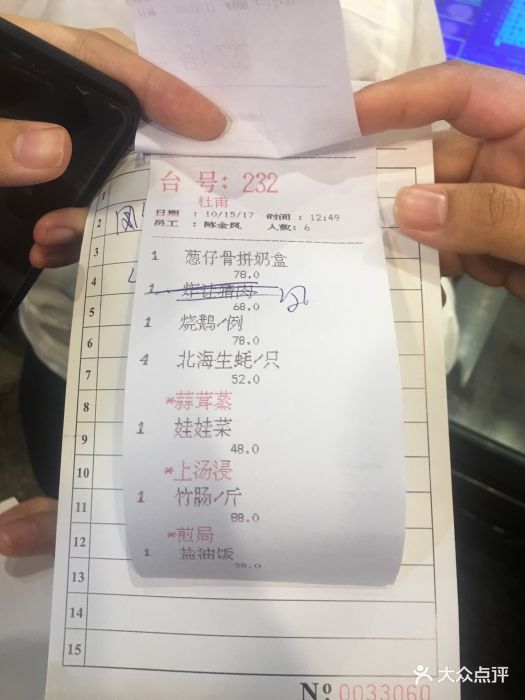 台 号: 232
杜甫
日期 : 10/15/17 时间 : 12:49
员工 : 陈金凤 人数: 6
1 葱仔骨拼奶盒
78.0
1
68.0
1 烧鹅/例
78.0
4 北海生蚝/只
52.0
*蒜茸蒸
1 娃娃菜
48.0
*上汤浸
1 竹肠/斤
88.0
*煎焗
1 盐油饭
38.0
1
2
4
5
6
7
8
9
10
11
12
13
14
15
No 0033060
大众点评